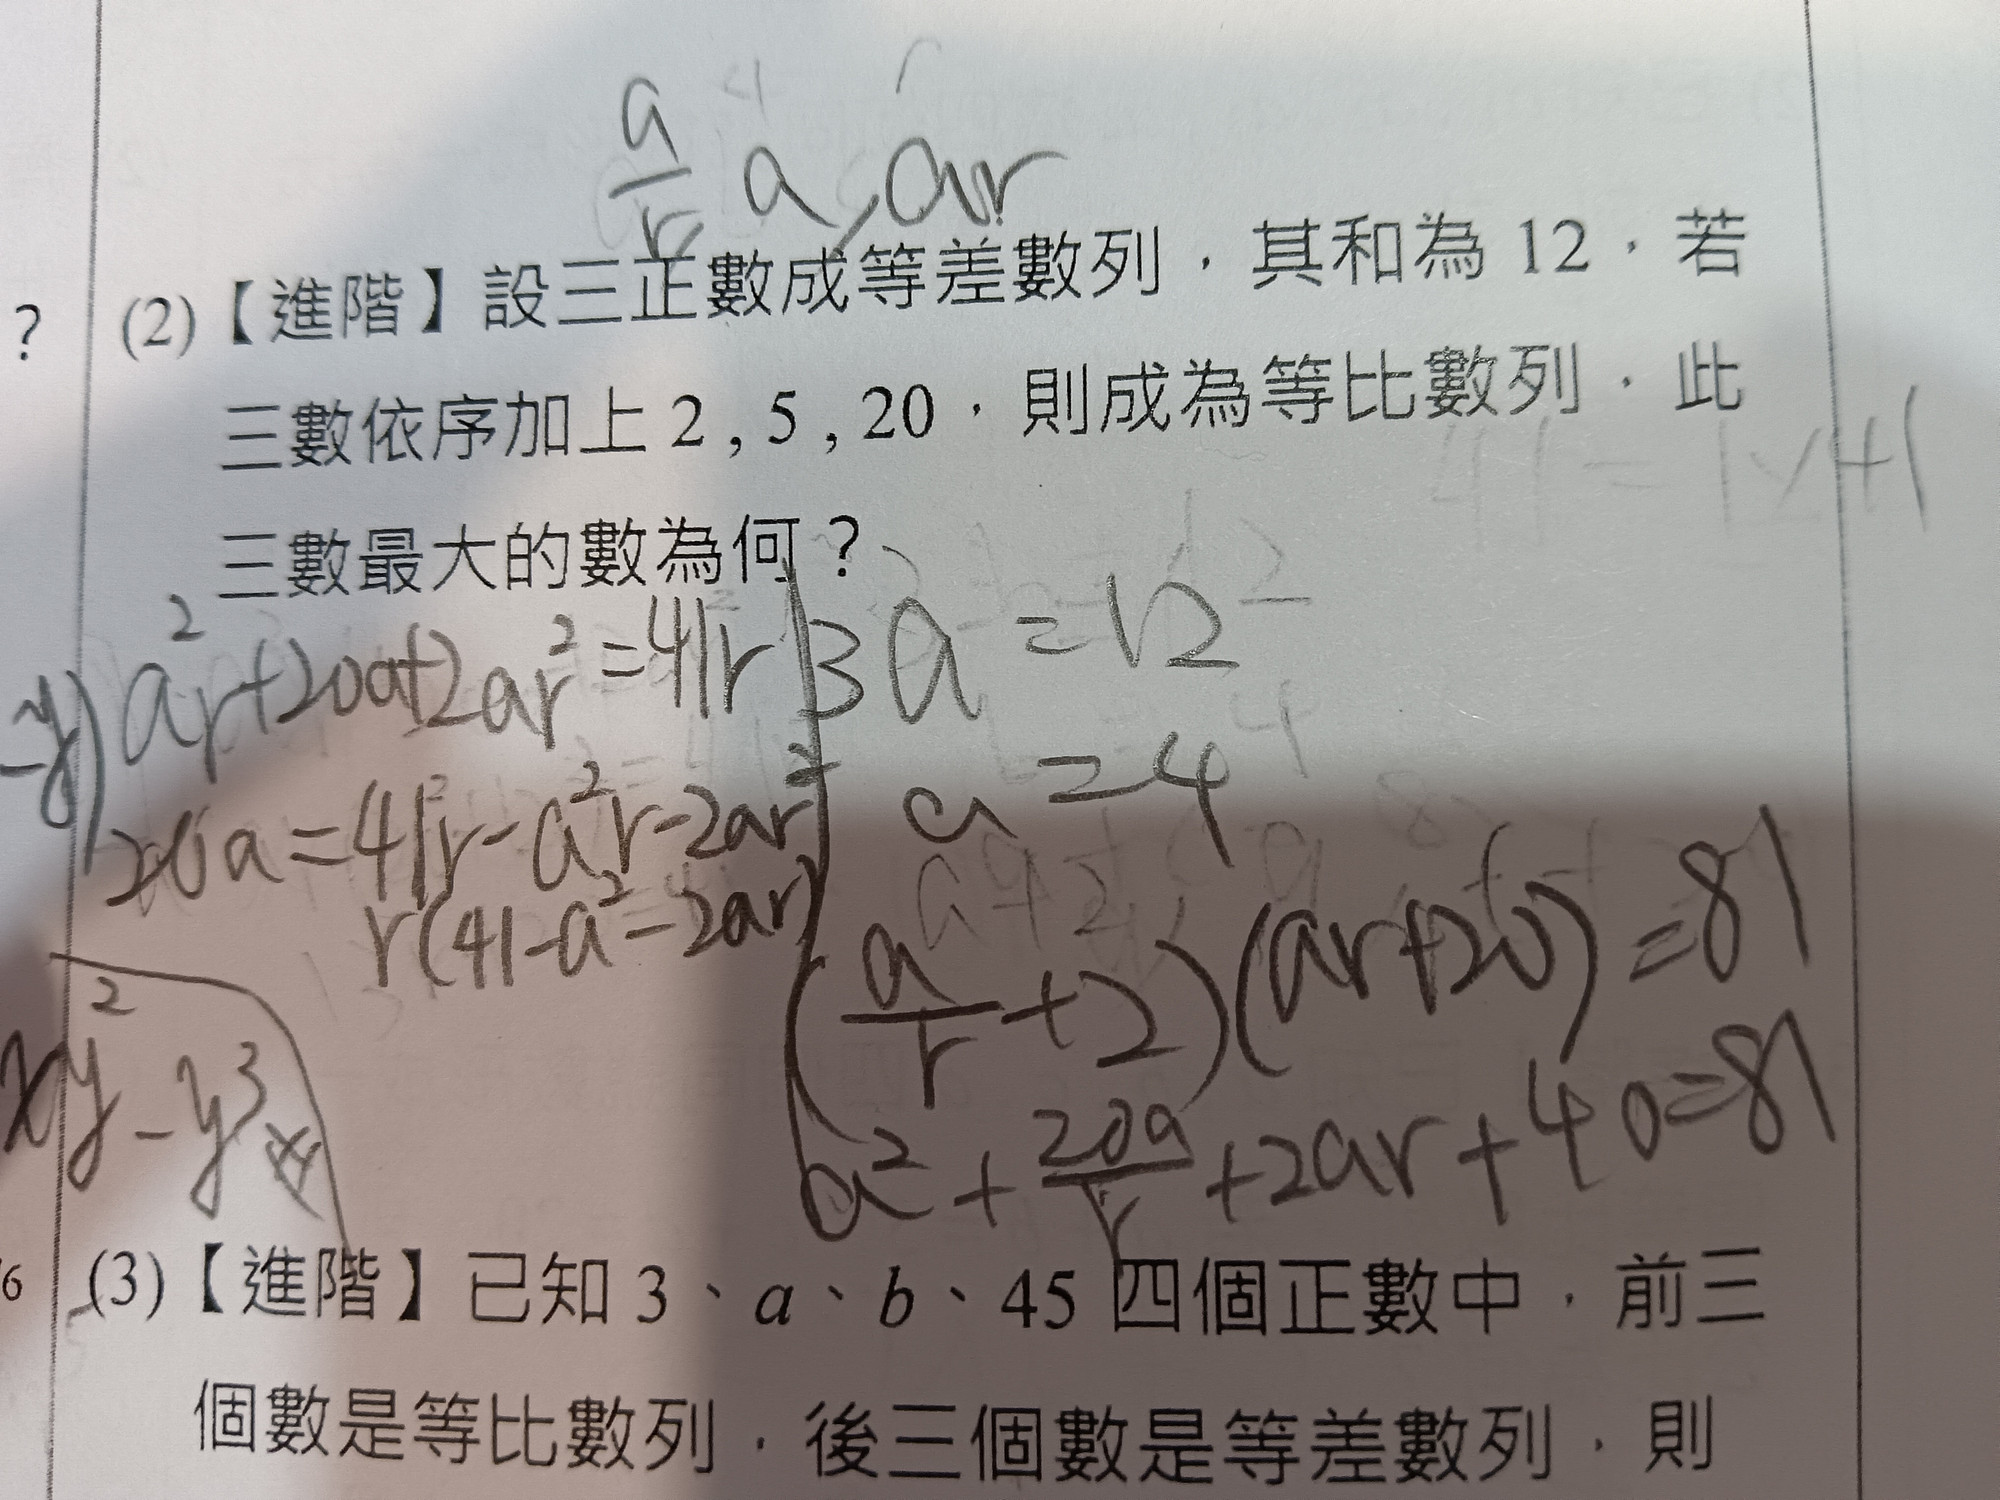 a/r, a, ar
? (2)【進階】設三正數成等差數列，其和為 12，若
三數依序加上 2 , 5 , 20，則成為等比數列，此
三數最大的數為何？
a²r+20a+2ar²=41r
3a=12
20a=41r-a²r-2ar²
a=4
r(41-a²-2ar)
(a/r+2)(ar+20)=81
xy²-y³
a²+20a/r+2ar+40=81
(3)【進階】已知 3、a、b、45 四個正數中，前三
個數是等比數列，後三個數是等差數列，則